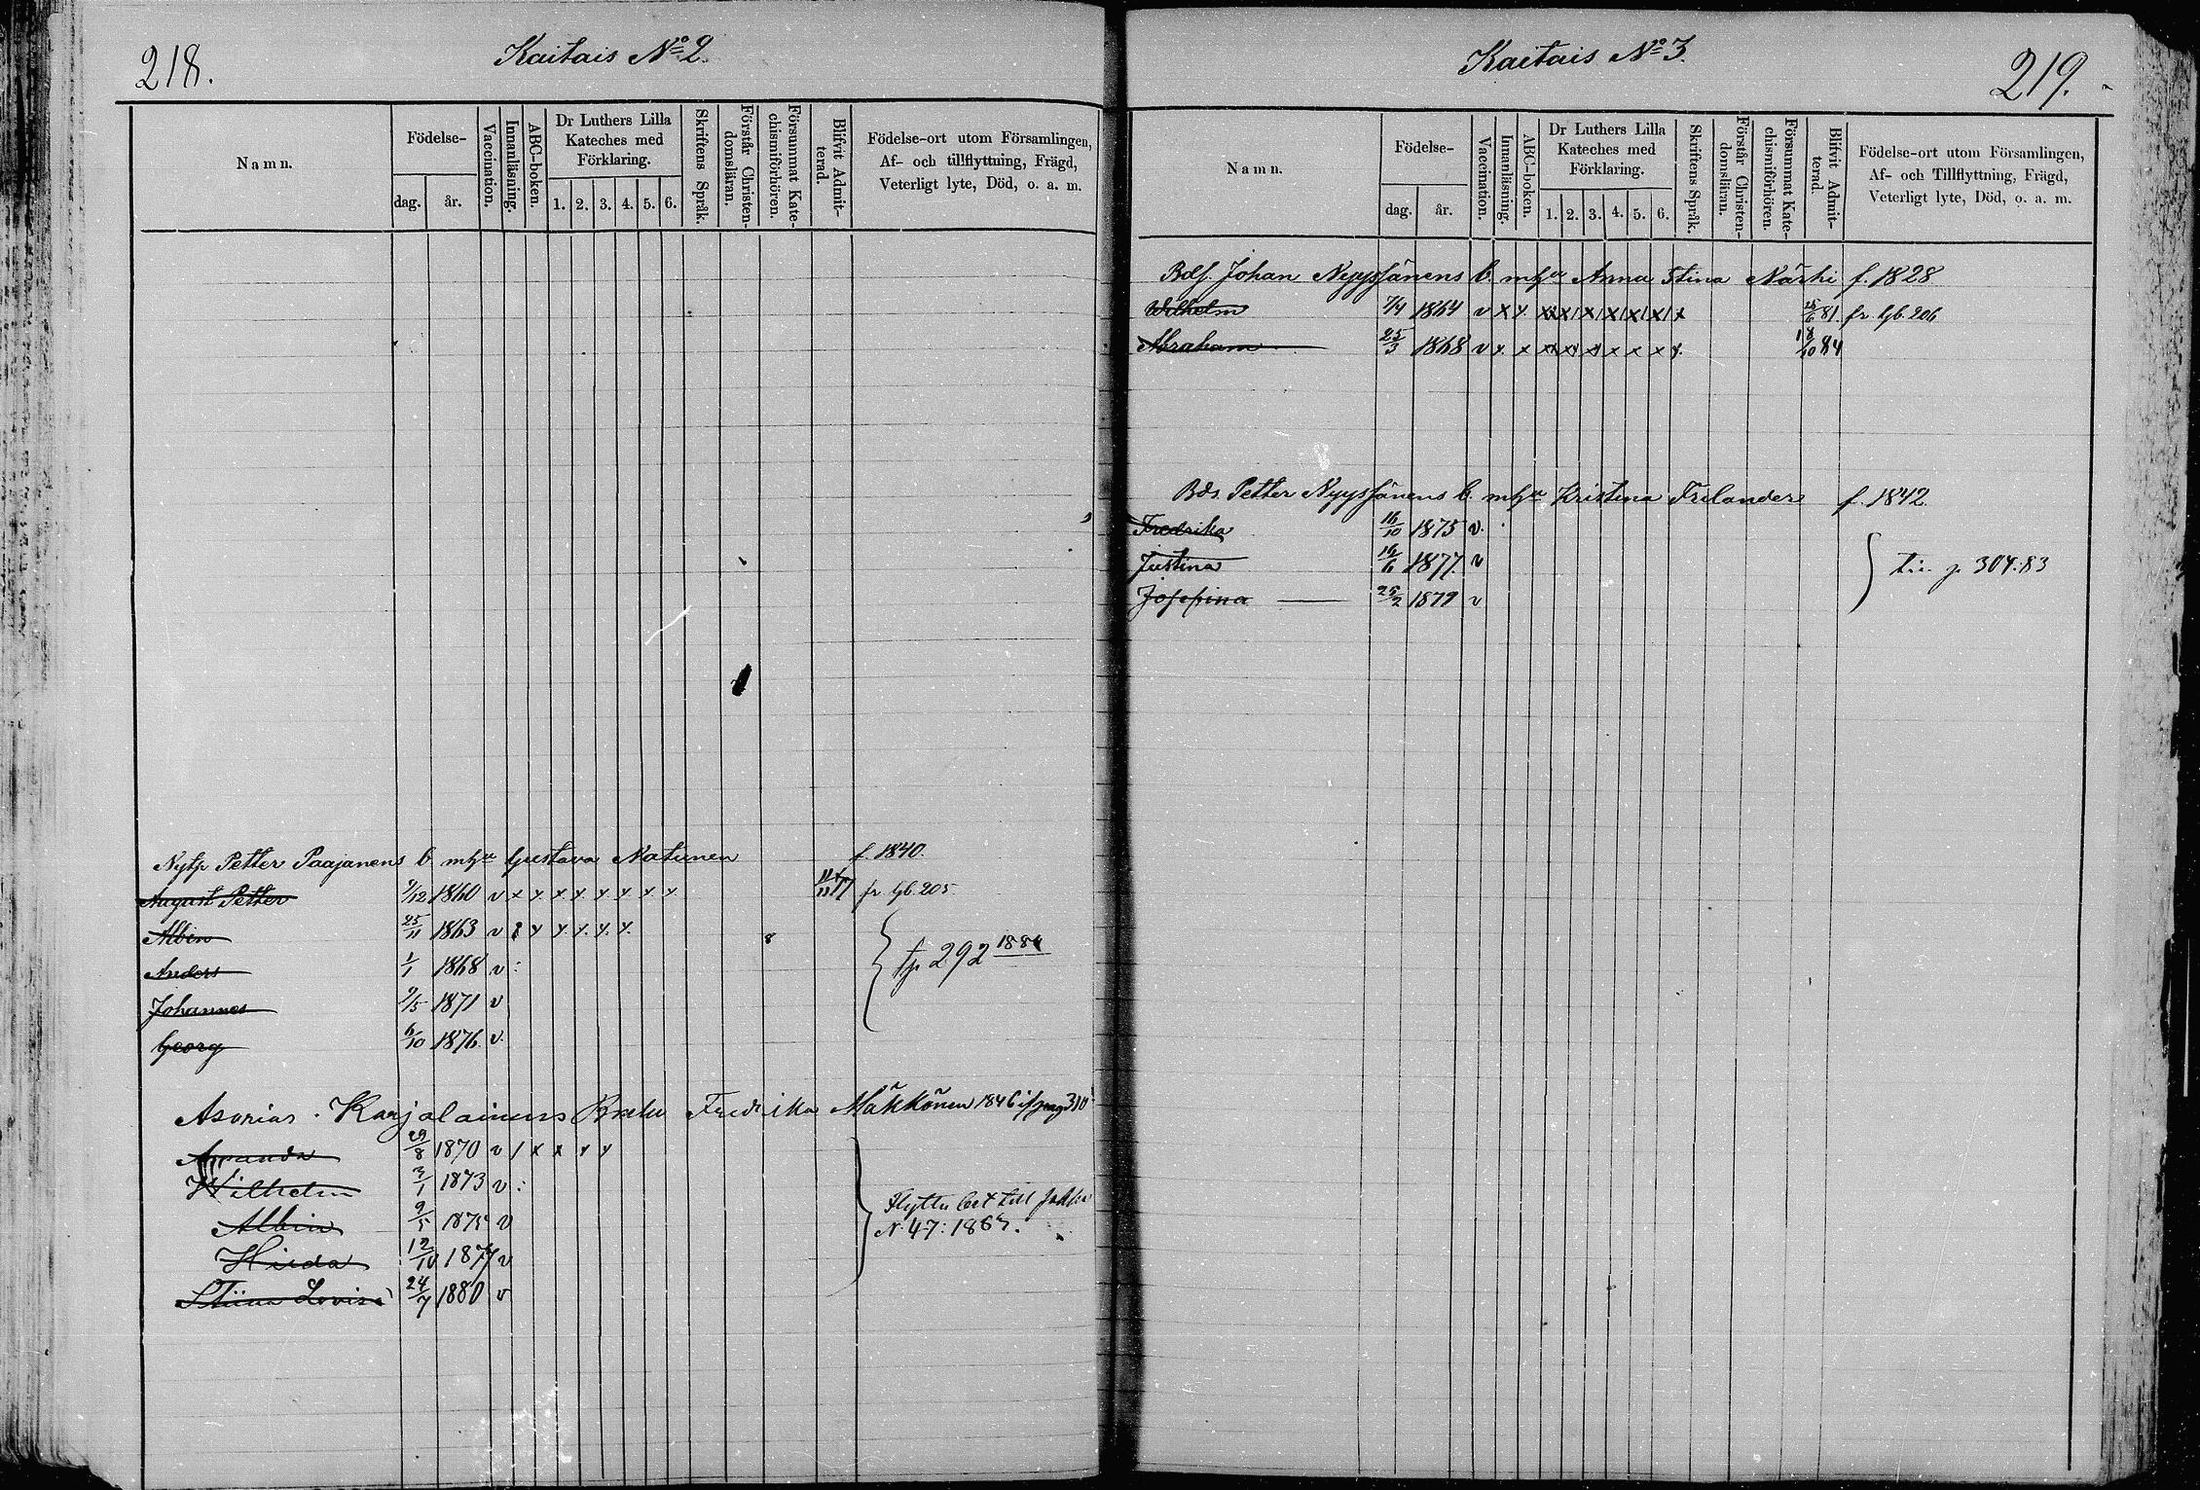 218.
Kaitais No 2.
Namn.
Födelse-
dag.
år.
Vaccination.
Innanläsning.
ABC-boken.
Dr Luthers Lilla
Kateches med
Förklaring.
1. 2. 3. 4. 5. 6.
Skriftens Språk.
Förstår Christen-
domsläran.
Försummat Kate-
chismiförhören.
Blifvit Admit-
terad.
Födelse-ort utom Församlingen,
Af- och tillflyttning, Frägd,
Veterligt lyte, Död, o. a. m.
Petter Paajanens b. m Gustava Matunen f. 1840.
August Petter 9/12 1860 v x x x x x x x x 77 fr. 205
Albin 25/11 1863 v 8 x x x x 8
Anders 1/1 1868 v :
292 1884
Johannes 9/5 1871 v
Georg 6/10 1876 v.
Asarias Karjalainens Fredrika Mäkkönen 1846 310
Amanda 29/8 1870 v / x x x x
Wilhelm 3/1 1873 v :
till
Albin 9/5 1875 v
N 47:
Hilda 12/10 1877 v
Stiina Lovisa 24/7 1880 v
219.
Kaitais No 3.
Namn.
Födelse-
dag.
år.
Vaccination.
Innanläsning.
ABC-boken.
Dr Luthers Lilla
Kateches med
Förklaring.
1. 2. 3. 4. 5. 6.
Skriftens Språk.
Förstår Christen-
domsläran.
Försummat Kate-
chismiförhören.
Blifvit Admit-
terad.
Födelse-ort utom Församlingen,
Af- och Tillflyttning, Frägd,
Veterligt lyte, Död, o. a. m.
Johan Nyyssönens b. m Anna Stina Närhi f. 1828
Wilhelm 7/4 1864 v x x 81. fr. 206
Abraham 25/3 1868 v x x 18/10 84
Petter Nyyssönens b. m Kristina Frilander f. 1842.
Fredrika 16/10 1875 v.
Justina 16/6 1877. v
p. 304:83
Josefina 25/2 1879 v